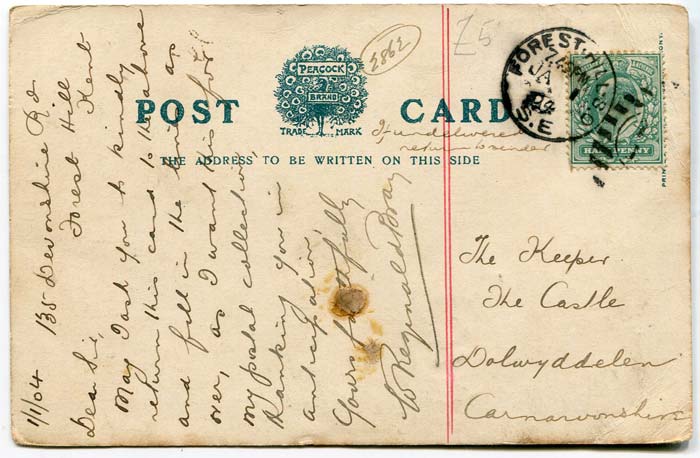 2862
Z5
PEACOCK
BRAND
TRADE MARK
POST CARD
THE ADDRESS TO BE WRITTEN ON THIS SIDE
If undelivered
return to sender
FOREST-HILL S.O
JA 1
04
S.E
HALFPENNY
135 Devonshire Rd
Forest Hill
Kent
1/1/04
Dear Sir,
May I ask you to kindly
return this card to the above
and fill in the lines
over, as I want this for
my postal collection,
thanking you in
anticipation,
Yours faithfully
W Reginald Bray
The Keeper
The Castle
Dolwyddelen
Carnarvonshire